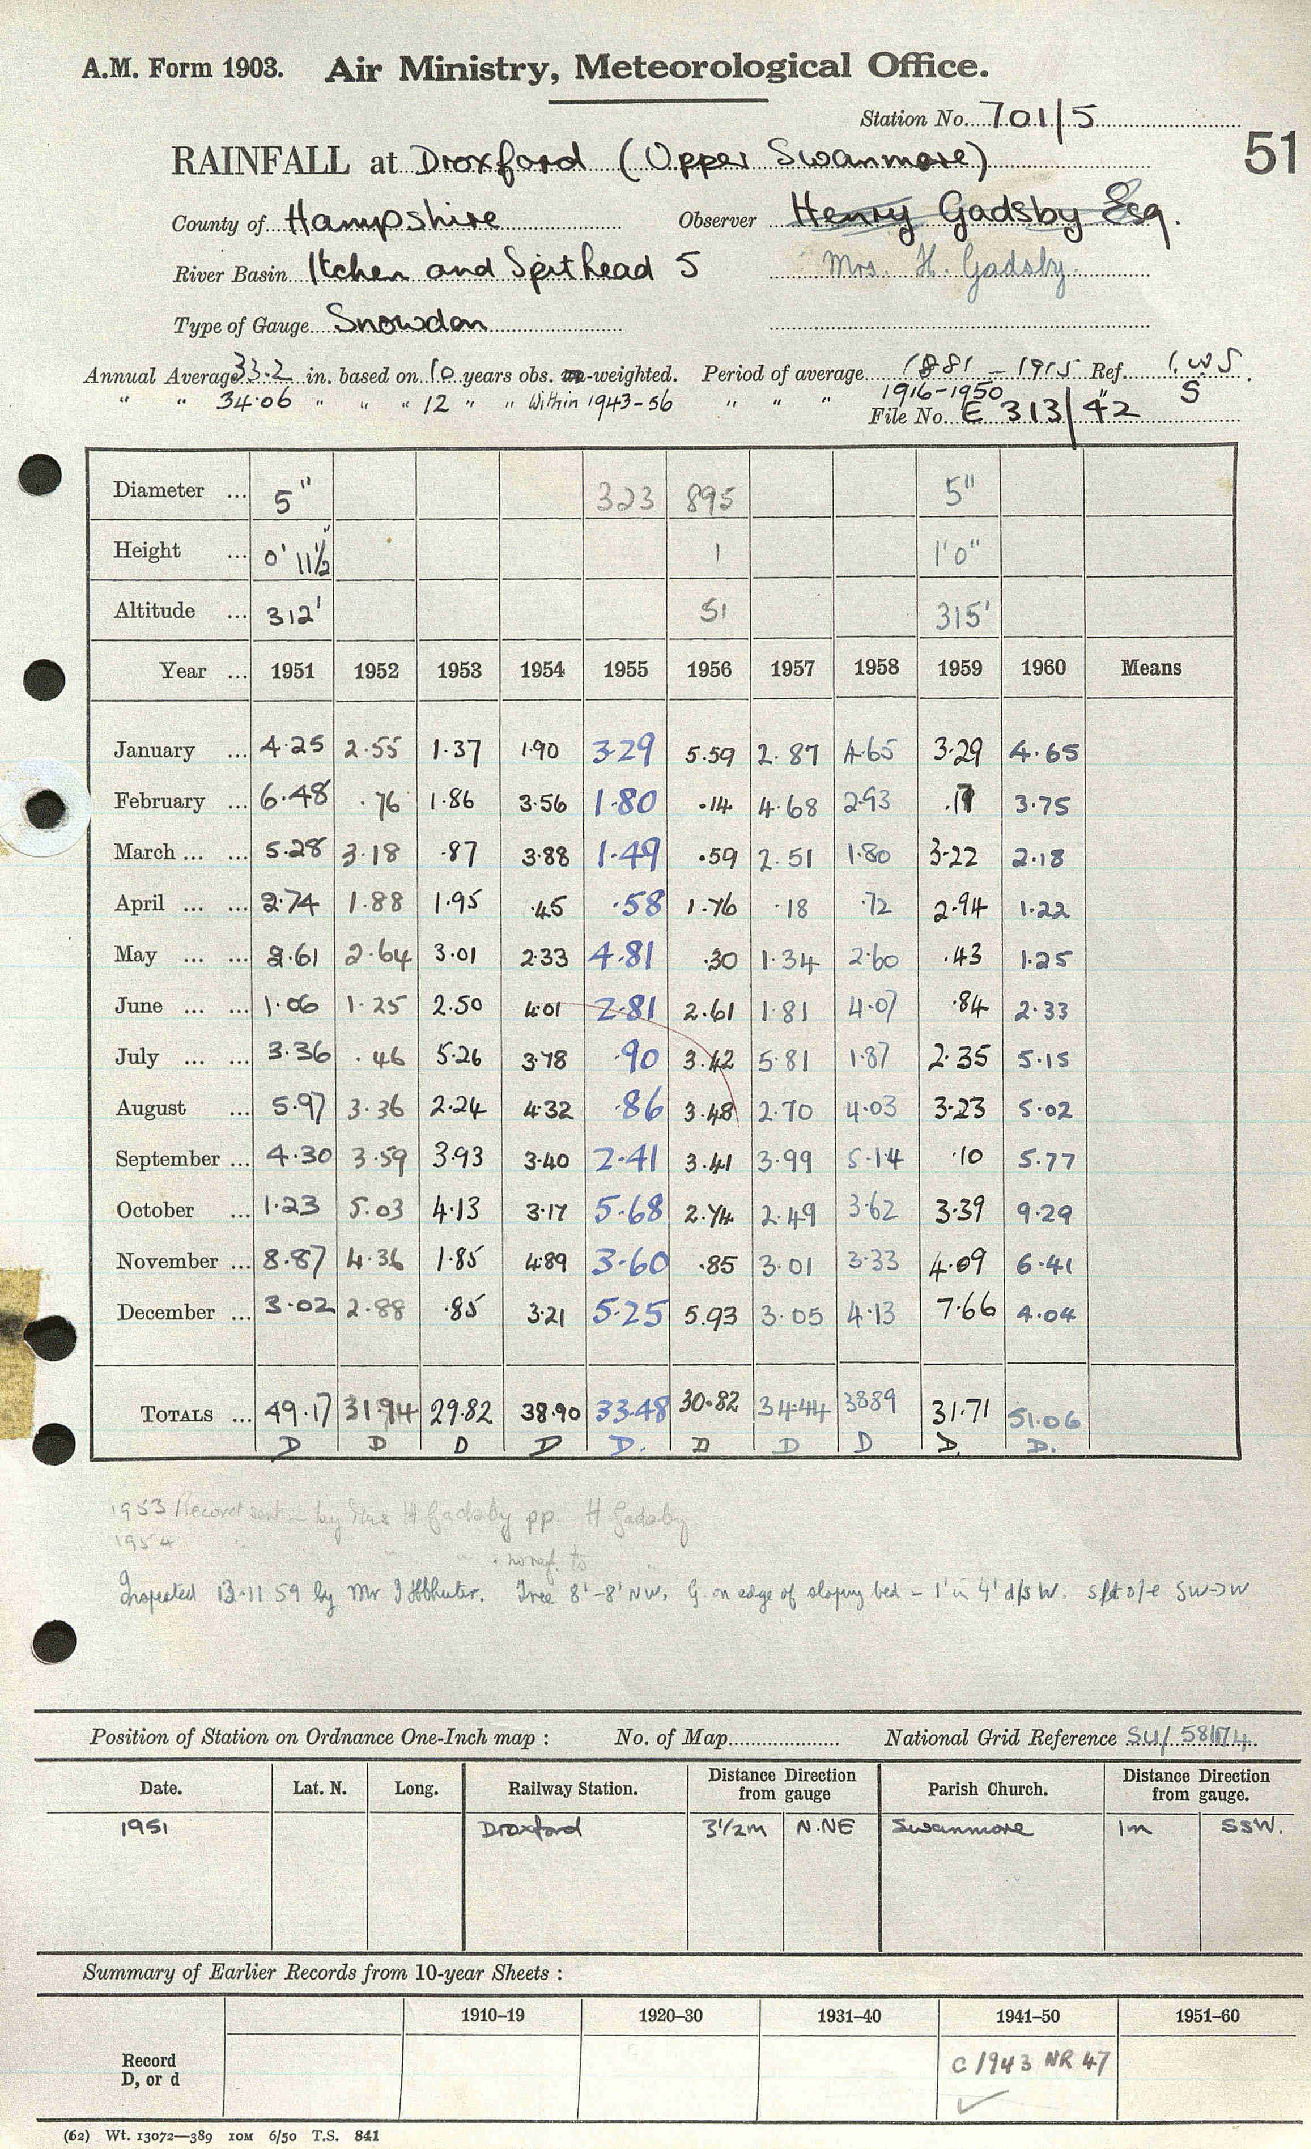 A.M. Form 1903. Air Ministry, Meteorological Office.
Station No. 701/5
51
RAINFALL at Droxford (Upper Swanmore)
County of Hampshire Observer Henry Gadsby Esq.
River Basin Itchen and Spithead 5 Mrs. H. Gadsby.
Type of Gauge Snowdon
Annual Average 33.2 in. based on 10 years obs. -weighted. Period of average 1881 - 1915 Ref. I.W.S.
" " 34.06 " " " 12 " " Within 1943-56 " " " 1916-1950 S
File No. E 313/42
Diameter ... 5" 323 895 5"
Height ... 0' 11½" 1 1'0"
Altitude ... 312' 51 315'
Year ... 1951 1952 1953 1954 1955 1956 1957 1958 1959 1960 Means
January ... 4.25 2.55 1.37 1.90 3.29 5.59 2.87 4.65 3.29 4.65
February ... 6.48 .76 1.86 3.56 1.80 .14 4.68 2.93 .17 3.75
March ... ... 5.28 3.18 .87 3.88 1.49 .59 2.51 1.80 3.22 2.18
April ... ... 2.74 1.88 1.95 .45 .58 1.76 .18 .72 2.94 1.22
May ... ... 2.61 2.64 3.01 2.33 4.81 .30 1.34 2.60 .43 1.25
June ... ... 1.06 1.25 2.50 4.01 2.81 2.61 1.81 4.07 .84 2.33
July ... ... 3.36 .46 5.26 3.78 .90 3.42 5.81 1.87 2.35 5.15
August ... 5.97 3.36 2.24 4.32 .86 3.48 2.70 4.03 3.23 5.02
September ... 4.30 3.59 3.93 3.40 2.41 3.41 3.99 5.14 .10 5.77
October ... 1.23 5.03 4.13 3.17 5.68 2.74 2.49 3.62 3.39 9.29
November ... 8.87 4.36 1.85 4.89 3.60 .85 3.01 3.33 4.09 6.41
December ... 3.02 2.88 .85 3.21 5.25 5.93 3.05 4.13 7.66 4.04
TOTALS ... 49.17 31.94 29.82 38.90 33.48 30.82 34.44 38.89 31.71 51.06
D D D D D. D D D D. D.
1953 Record sent in by Mrs H Gadsby pp. H Gadsby
1954 " " "
no ref. to
Inspected 13.11.59 by Mr. Tree 8'-8' NW. G. on edge of sloping bed - 1' in 4' d/s W. SW->W
Position of Station on Ordnance One-Inch map : No. of Map National Grid Reference SU/
Date. Lat. N. Long. Railway Station. Distance from Direction gauge Parish Church. Distance from Direction gauge.
1951 Droxford 3½m N.NE Swanmore 1m SSW.
Summary of Earlier Records from 10-year Sheets :
1910–19 1920–30 1931–40 1941–50 1951–60
Record D, or d C 1943 NR 47
✓
(62) Wt. 13072—389 10M 6/50 T.S. 841